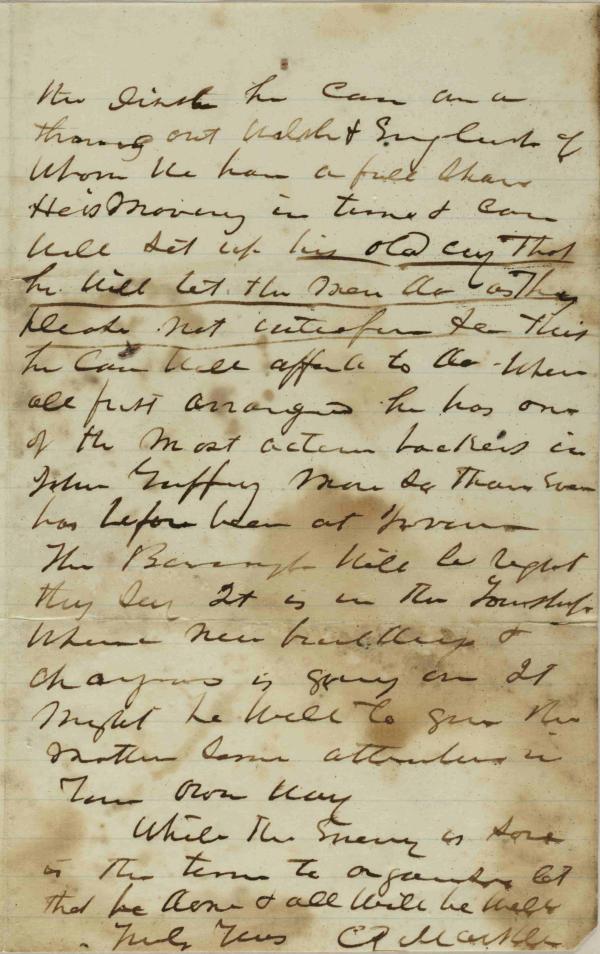 the he can in a
out Welsh & English of
Whom we have a full Share
He is Moving in time & can
Will Set up his old cry That
he Will let the Men do as They
Please not interfere So This
he Can Well afford to do When
all first arranged he has one
of the Most active backers in
John Guffey More So Than Ever
has before been at
The Borough Will be right
they Say It is in the Township
Where New buildings &
changes is going on It
Might be Well to give the
Matter Some attention in
Your Own Way
While The Enemy is
is the time to organize let
that be done & all Will be Well
Truly Yours C Markle